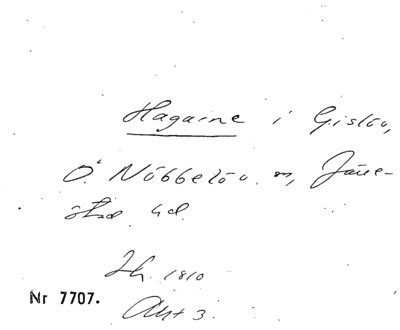 Hagarne i Gislöv,
Ö. Nöbbelöv. sn, Järre-
stad hd.
1810
Nr 7707.
Akt 3.